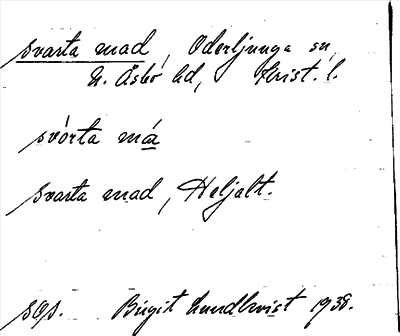 svarta mad, Oderljunga sn
N. Åsbo hd, Krist. l.
svórta má
svarta mad, Heljalt.
sgs. Birgit Lundkvist 1938.